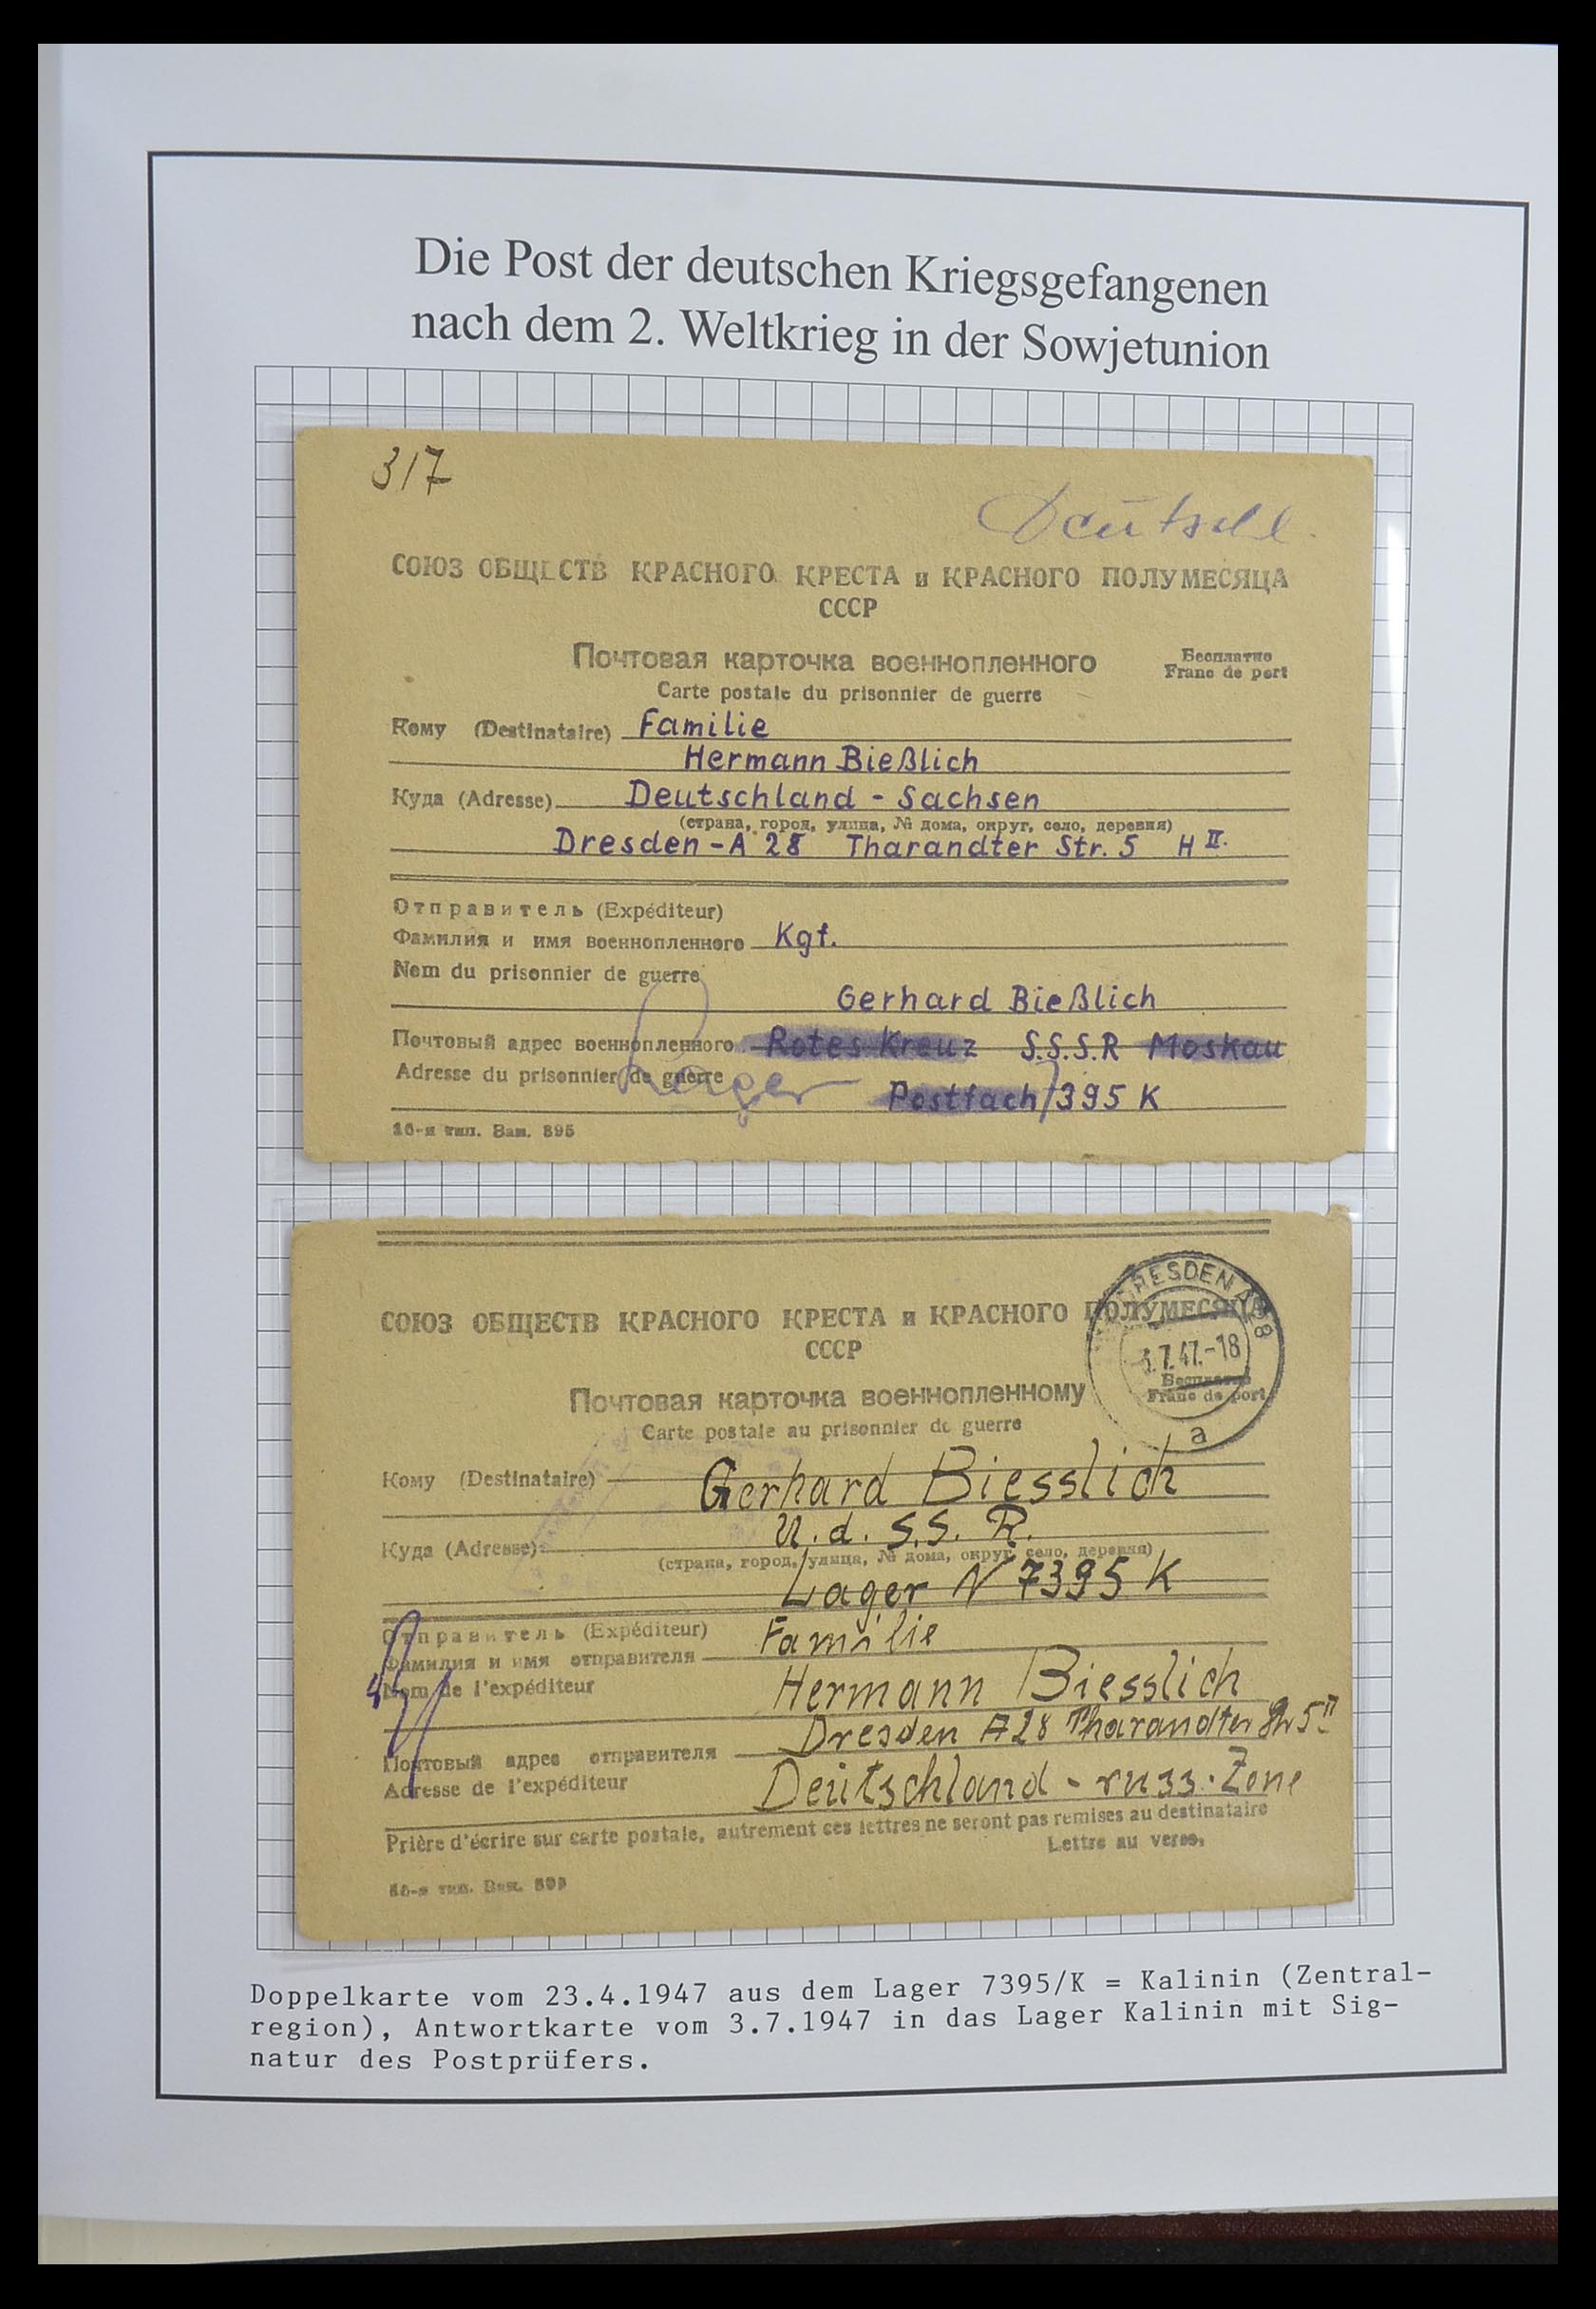 Die Post der deutschen Kriegsgefangenen
nach dem 2. Weltkrieg in der Sowjetunion
317
Deutschl.
СОЮЗ ОБЩЕСТВ КРАСНОГО КРЕСТА и КРАСНОГО ПОЛУМЕСЯЦА
СССР
Почтовая карточка военнопленного
Бесплатно
Franc de port
Carte postale du prisonnier de guerre
Кому (Destinataire) Familie
Hermann Bießlich
Куда (Adresse) Deutschland - Sachsen
(страна, город, улица, № дома, округ, село, деревня)
Dresden - A 28 Tharandter Str. 5 H II.
Отправитель (Expéditeur)
Фамилия и имя военнопленного Kgf.
Nom du prisonnier de guerre
Gerhard Bießlich
Почтовый адрес военнопленного Rotes Kreuz S.S.S.R Moskau
Adresse du prisonnier de guerre Lager Postfach 7395 K
16-я тип. Зак. 895
СОЮЗ ОБЩЕСТВ КРАСНОГО КРЕСТА и КРАСНОГО ПОЛУМЕСЯЦА
СССР
DRESDEN A 28
3.7.47.-18
a
Почтовая карточка военнопленному
Бесплатно
Franc de port
Carte postale au prisonnier de guerre
Кому (Destinataire) Gerhard Biesslich
U.d.S.S.R.
Куда (Adresse)
(страна, город, улица, № дома, округ, село, деревня)
Lager N 7395 K
Отправитель (Expéditeur) Familie
Фамилия и имя отправителя
Nom de l'expéditeur Hermann Biesslich
Dresden A28 Tharandter Str 5 II
Почтовый адрес отправителя
Adresse de l'expéditeur Deutschland - russ. Zone
Prière d'écrire sur carte postale, autrement ces lettres ne seront pas remises au destinataire
Lettre au verso.
16-я тип. Зак. 895
Doppelkarte vom 23.4.1947 aus dem Lager 7395/K = Kalinin (Zentral-
region), Antwortkarte vom 3.7.1947 in das Lager Kalinin mit Sig-
natur des Postprüfers.